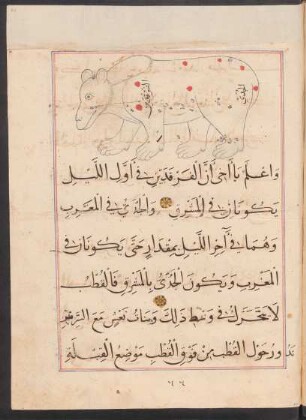 الفرقدين
الجدي
واعلم يا اخي ان الفرقدين في اول الليل
يكونان في المشرق والجدي في المغرب
وهما في آخر الليل بمقدار حتى يكونان في
المغرب ويكون الجدي بالمشرق فالقطب
لا يتحرك في وسط ذلك وبنات نعش مع
ورحول القطب من فوق القطب موضع القبلة